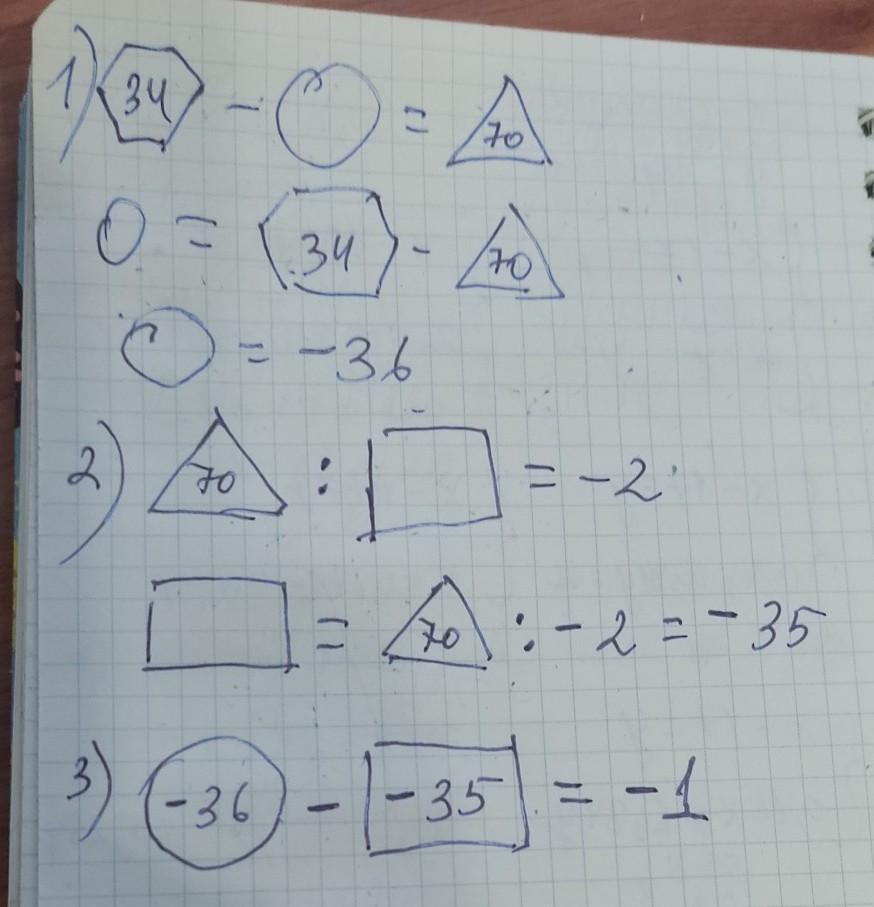 1) 34 - ○ = 70
○ = 34 - 70
○ = -36
2) 70 : □ = -2
□ = 70 : -2 = -35
3) -36 - -35 = -1